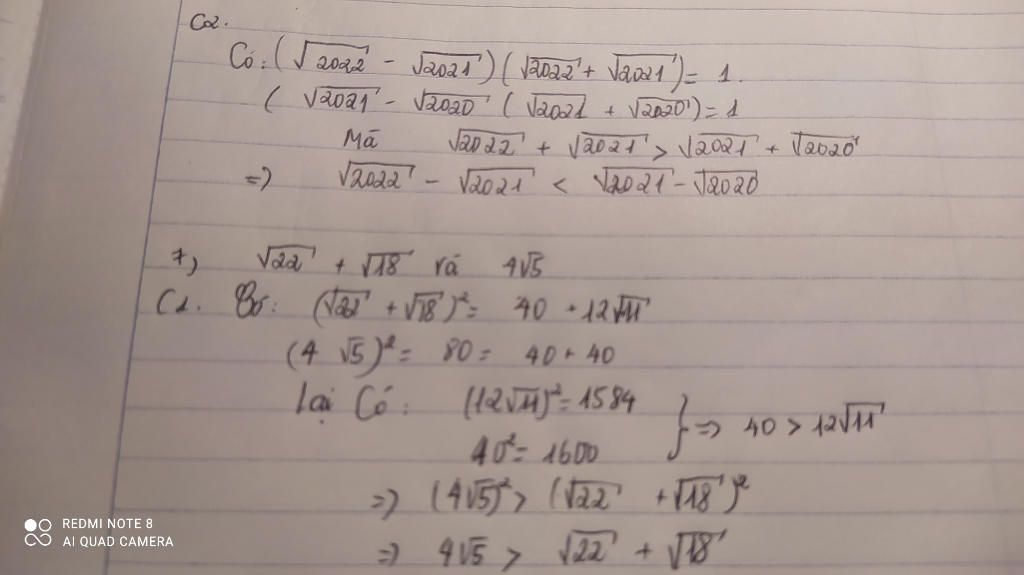 C2.
Có: (√2022 - √2021)(√2022 + √2021) = 1.
(√2021 - √2020 (√2021 + √2020) = 1
Mà √2022 + √2021 > √2021 + √2020
=> √2022 - √2021 < √2021 - √2020
7) √22 + √18 và 4√5
C1. Có: (√22 + √18)² = 40 + 12√11
(4√5)² = 80 = 40 + 40
Lại Có: (12√11)² = 1584
40² = 1600 } => 40 > 12√11
=> (4√5)² > (√22 + √18)²
=> 4√5 > √22 + √18
REDMI NOTE 8
AI QUAD CAMERA